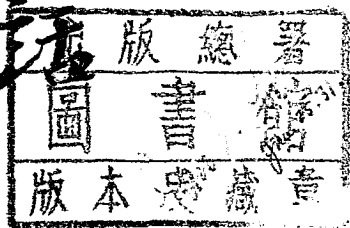 版總署
圖書館
版本藏章